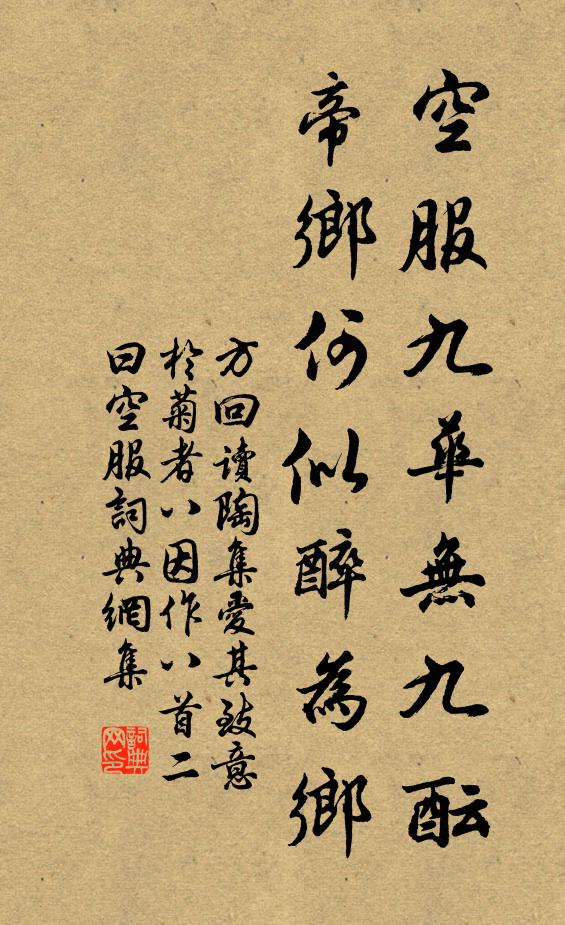 空服九華無九酝
帝鄉何似醉為鄉
方回讀陶集愛其致意
於菊者八因作八首二
曰空服詞典網集
詞典网印